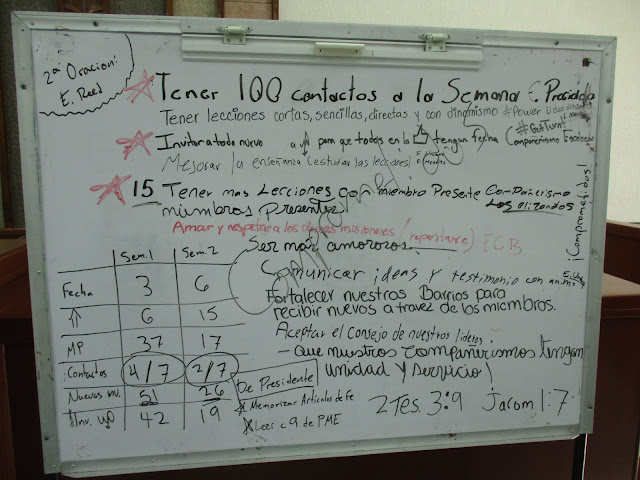 2ª Oracion:
E. Reed
Tener 100 contactos a la Semana E. Preciado
Tener lecciones cortas, sencillas, directas y con dinamismo #Power
Invitar a todo nuevo a para que todos en la tengan fecha Compañerismo
#GetTurnt
Mejorar la enseñanza (estudiar las lecciones)
15 Tener mas Lecciones con miembro Presente Compañerismo
miembros presentes! Los elizondos
Amar y respetar a los demas misioneros (reportance) FCB
Ser mas amorozos.
Comunicar ideas y testimonio con
Fortalecer nuestros Barrios para
recibir nuevos a travez de los miembros.
Aceptar el consejo de nuestros lideres.
- que nuestros compañerismos tengan
unidad y servicio!
Sem. 1 Sem. 2
Fecha 3 6
6 15
MP 37 17
Contactos 4/7 2/7
Nuevos inv. 51 26
Inv. 42 19
De Presidente
Memorizar Articulos de Fe
Leer c 9 de PME
2 Tes. 3:9 Jacom 1:7